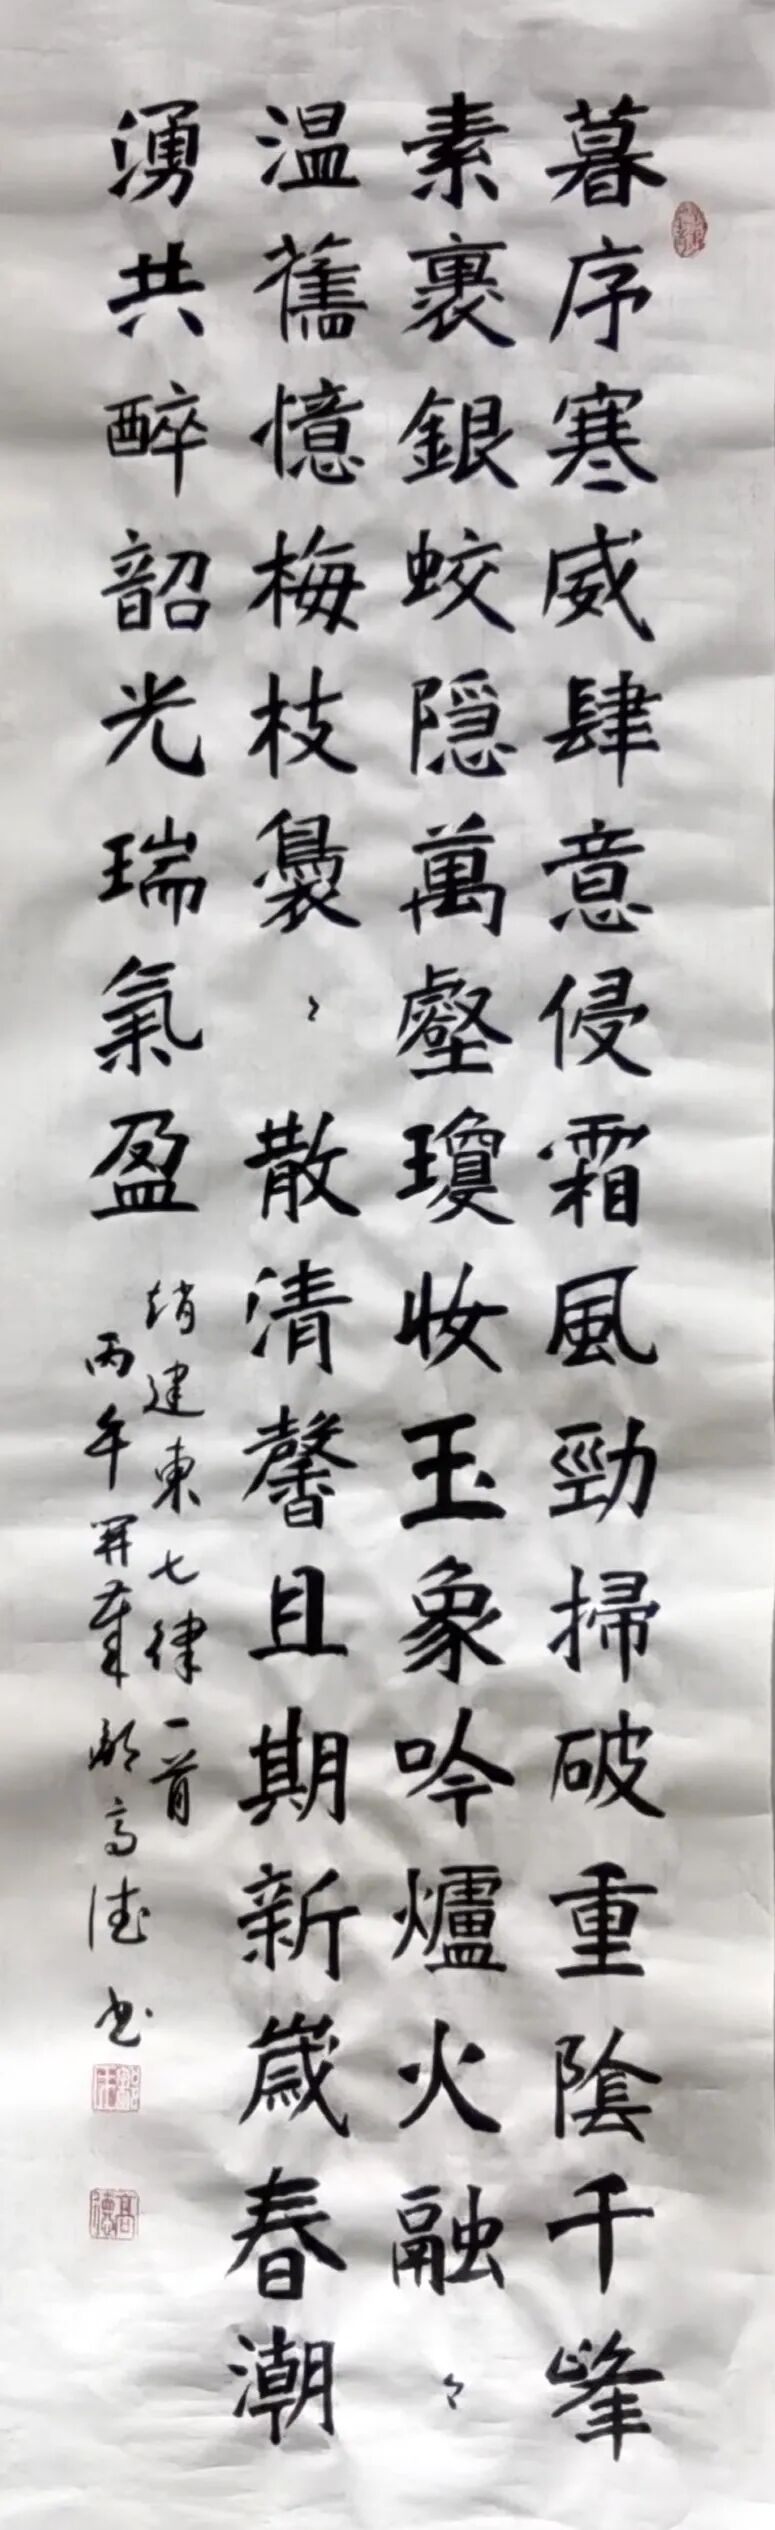 暮序寒威肆意侵霜風勁掃破重陰千峰
素裹銀蛟隱萬壑瓊妝玉象吟爐火融〻
温舊憶梅枝裊〻散清馨且期新歲春潮
湧共醉韶光瑞氣盈
趙建東七律一首
丙午開筆 高德书
高德